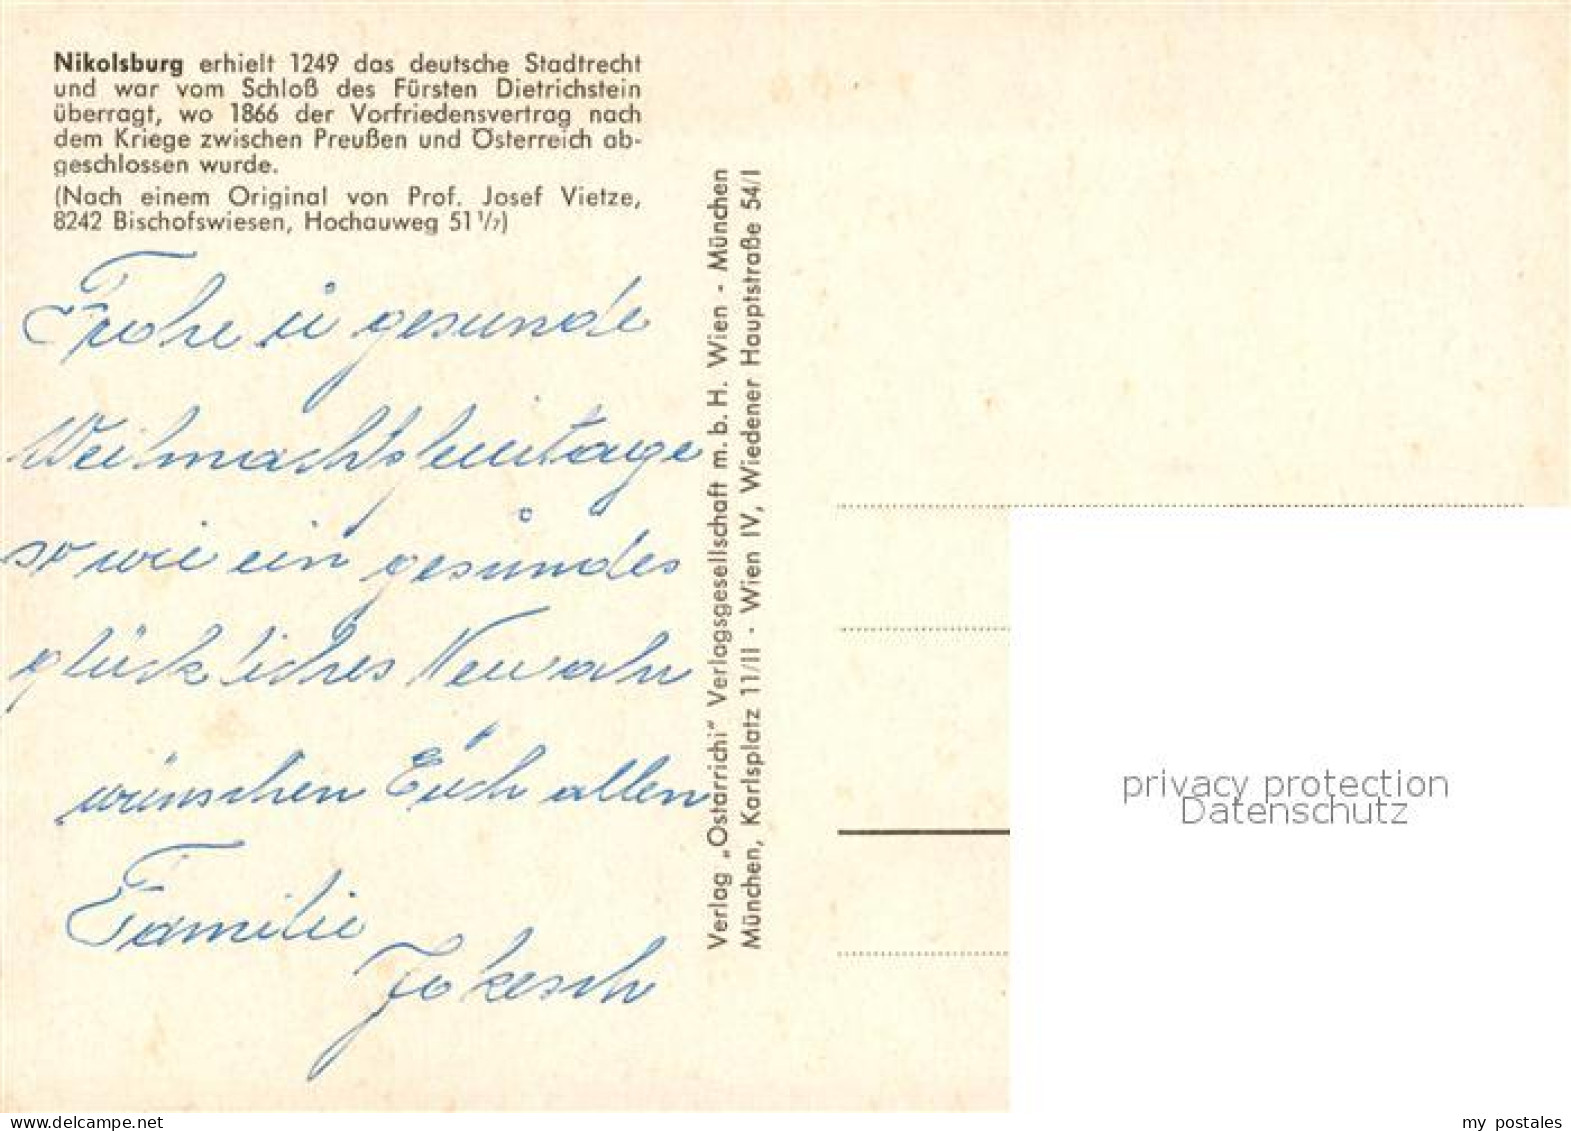 Nikolsburg erhielt 1249 das deutsche Stadtrecht
und war vom Schloß des Fürsten Dietrichstein
überragt, wo 1866 der Vorfriedensvertrag nach
dem Kriege zwischen Preußen und Österreich ab-
geschlossen wurde.
(Nach einem Original von Prof. Josef Vietze,
8242 Bischofswiesen, Hochauweg 51 1/7)
Frohe u gesunde
Weihnachtsfeiertage
so wie ein gesundes
glückliches Neujahr
wünschen Euch allen
Familie
Jokesch
Verlag „Ostarrichi“ Verlagsgesellschaft m. b. H. Wien - München
München, Karlsplatz 11/II · Wien IV, Wiedener Hauptstraße 54/I
privacy protection
Datenschutz
www.delcampe.net
my_postales